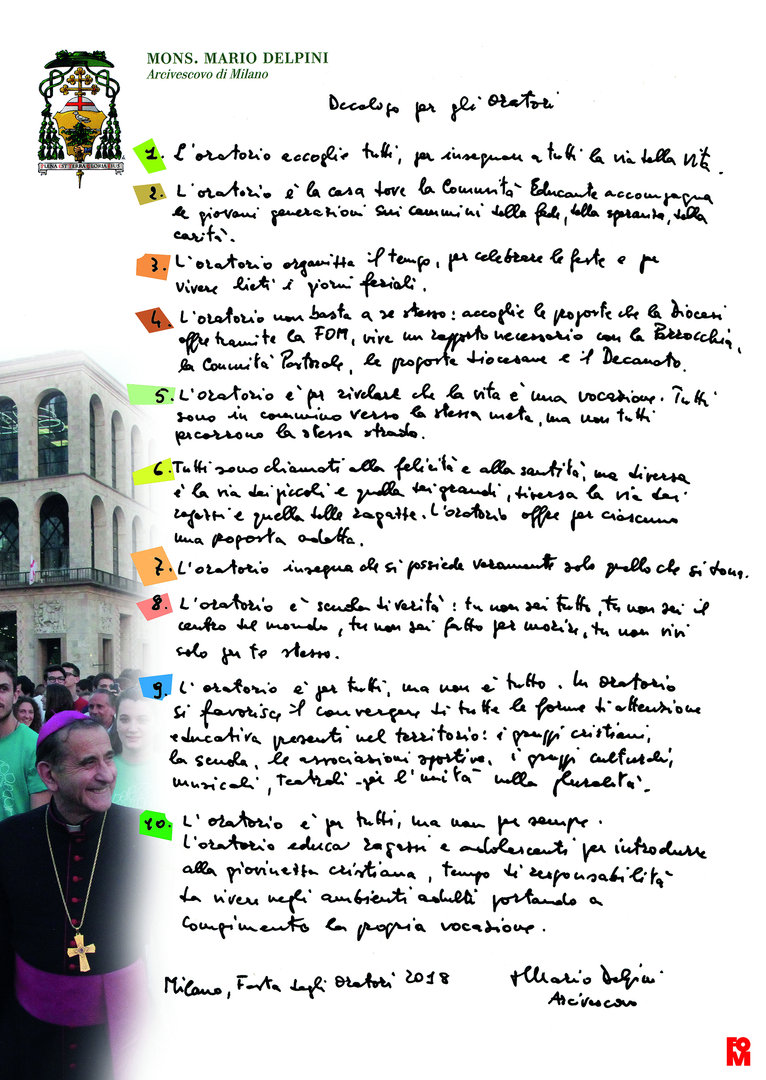 MONS. MARIO DELPINI
Arcivescovo di Milano
PLENA EST TERRA GLORIA EIUS
Decalogo per gli Oratori
1. L'oratorio accoglie tutti, per insegnare a tutti la via della vita.
2. L'oratorio è la casa dove la Comunità Educante accompagna
le giovani generazioni sui cammini della fede, della speranza, della
carità.
3. L'oratorio organizza il tempo, per celebrare le feste e per
vivere lieti i giorni feriali.
4. L'oratorio non basta a se stesso: accoglie le proposte che la Diocesi
offre tramite la FOM, vive un rapporto necessario con la Parrocchia,
la Comunità Pastorale, le proposte diocesane e il Decanato.
5. L'oratorio è per rivelare che la vita è una vocazione. Tutti
sono in cammino verso la stessa meta, ma non tutti
percorrono la stessa strada.
6. Tutti sono chiamati alla felicità e alla santità, ma diversa
è la via dei piccoli e quella dei grandi, diversa la via dei
ragazzi e quella delle ragazze. L'oratorio offre per ciascuno
una proposta adatta.
7. L'oratorio insegna che si possiede veramente solo quello che si dona.
8. L'oratorio è scuola di verità: tu non sei tutto, tu non sei il
centro del mondo, tu non sei fatto per morire, tu non vivi
solo per te stesso.
9. L'oratorio è per tutti, ma non è tutto. In oratorio
si favorisce il convergere di tutte le forme di attenzione
educativa presenti nel territorio: i gruppi cristiani,
la scuola, le associazioni sportive, i gruppi culturali,
musicali, teatrali per l'unità nella pluralità.
10. L'oratorio è per tutti, ma non per sempre.
L'oratorio educa ragazzi e adolescenti per introdurre
alla giovinezza cristiana, tempo di responsabilità
da vivere negli ambienti adulti portando a
compimento la propria vocazione.
Milano, Festa degli Oratori 2018
+ Mario Delpini
Arcivescovo
FOM